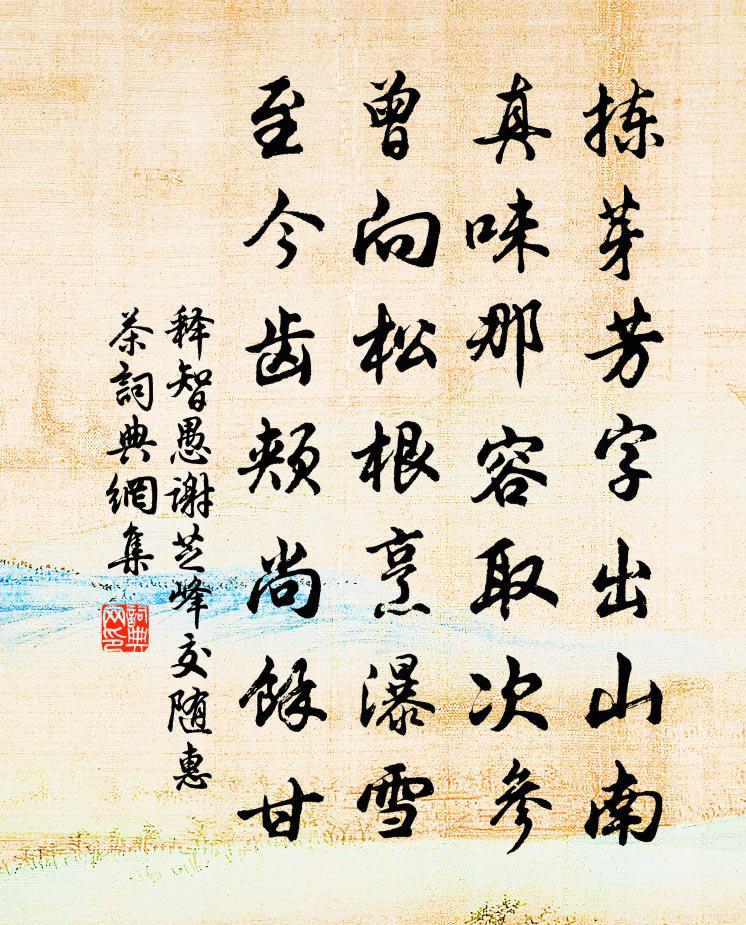 拣芽芳字出山南
真味那容取次参
曾向松根烹瀑雪
至今齿颊尚餘甘
释智愚谢芝峰交随惠
茶詞典網集
詞典网印